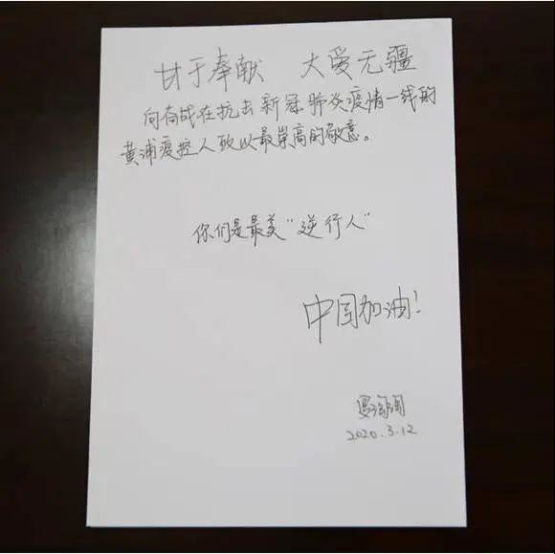 甘于奉献 大爱无疆
向奋战在抗击新冠肺炎疫情一线的
黄浦疾控人致以最崇高的敬意。
你们是最美“逆行人”
中国加油！
2020.3.12